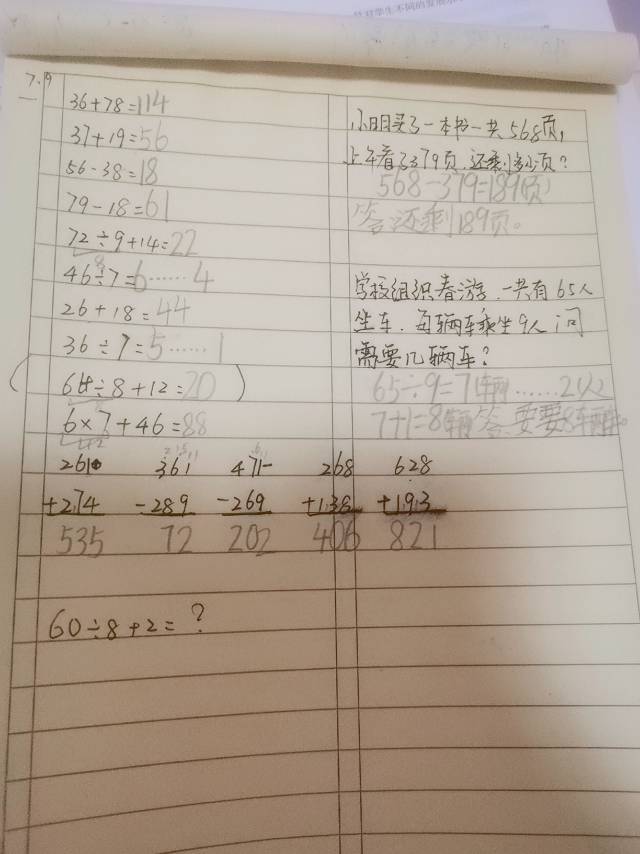 7.9
一
36+78=114
37+19=56
56-38=18
79-18=61
72÷9+14=22
8
46÷7=6……4
26+18=44
36÷7=5……1
(64÷8+12=20)
6×7+46=88
42
261
+274
535
361
-289
72
471
-269
202
268
+138
406
628
+193
821
60÷8+2=?
小明买了一本书一共568页,
上午看了379页,还剩多少页?
568-379=189(页)
答:还剩189页。
学校组织春游,一共有65人
坐车,每辆车乘坐9人,问
需要几辆车?
65÷9=7(辆)……2(人)
7+1=8(辆)答:要要8车辆车。